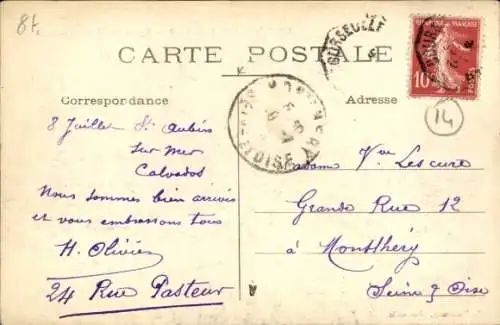 8f.
CARTE POSTALE
Correspondance
Adresse
10
14
8 Juillet St Aubin
sur mer
Calvados
Nous sommes bien arrivés
et vous embrassons tous
H. Olivier
24 Rue Pasteur
Madame Vve Lescure
Grande Rue 12
à Montlhéry
Seine & Oise